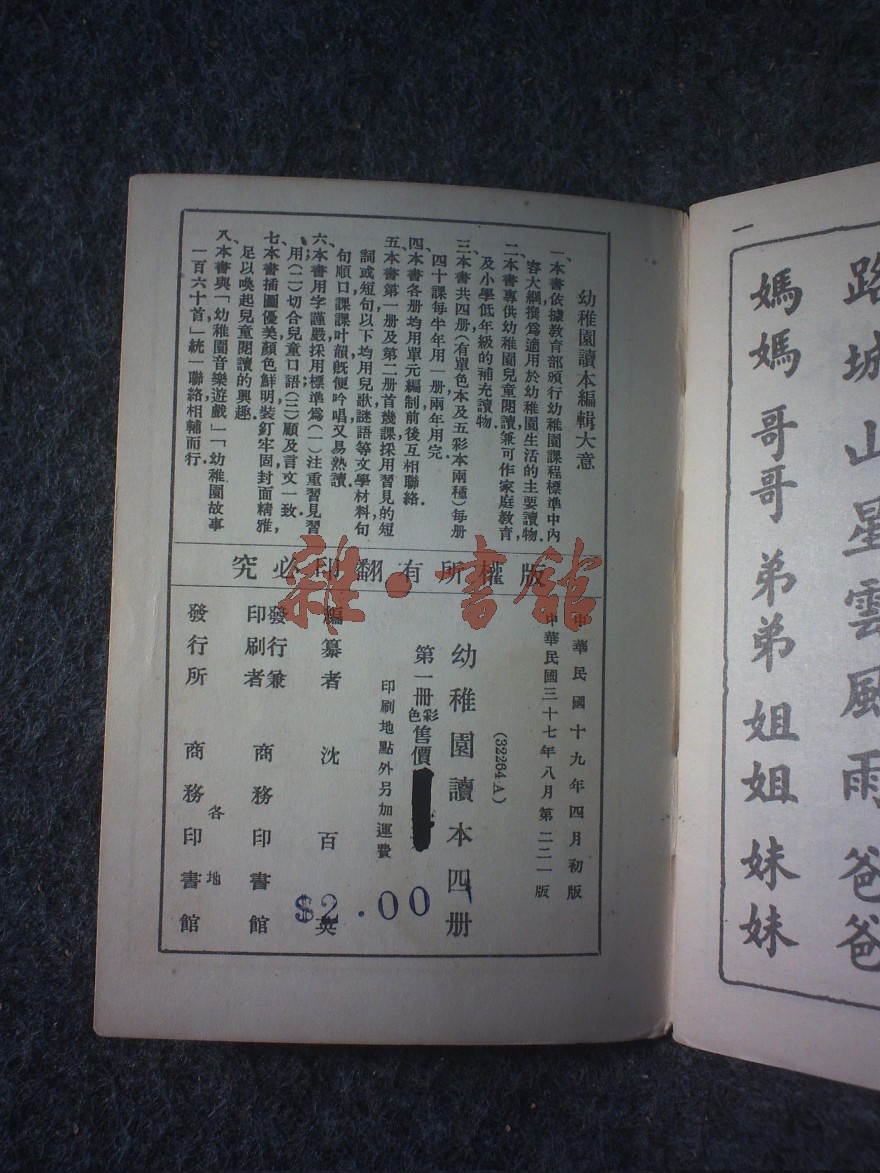 幼稚園讀本編輯大意
一、本書依據教育部頒行幼稚園課程標準中內
容大綱撰爲適用於幼稚園生活的主要讀物.
二、本書專供幼稚園兒童閱讀兼可作家庭教育,
及小學低年級的補充讀物.
三、本書共四册(有單色本及五彩本兩種)每册
四十課每半年用一册兩年用完.
四、本書各册均用單元編制前後互相聯絡.
五、本書第一册及第二册首幾課採用習見的短
詞或短句以下均用兒歌謎語等文學材料句
句順口課課叶韻旣便吟唱又易熟讀.
六、本書用字謹嚴採用標準爲(一)注重習見習
用;(二)切合兒童口語;(三)顧及言文一致.
七、本書插圖優美顏色鮮明裝釘牢固封面精雅,
足以喚起兒童閱讀的興趣.
八、本書與「幼稚園音樂遊戲」「幼稚園故事
一百六十首」統一聯絡相輔而行.
版權所有翻印必究
中華民國十九年四月初版
中華民國三十七年八月第二二一版
(32264·A)
幼稚園讀本四册
第一册彩色售價
印刷地點外另加運費
編纂者 沈百英
發行兼印刷者 商務印書館
發行所 各地商務印書館
$2.00
雜·書館
一
路 城 山 星 雲 風 雨 爸爸
媽媽 哥哥 弟弟 姐姐 妹妹